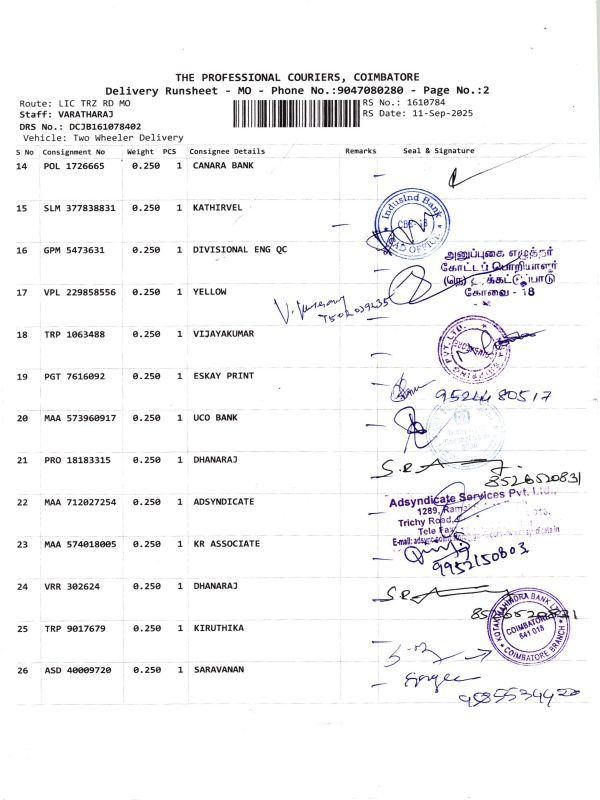 THE PROFESSIONAL COURIERS, COIMBATORE
Delivery Runsheet - MO - Phone No.:9047080280 - Page No.:2
Route: LIC TRZ RD MO RS No.: 1610784
Staff: VARATHARAJ RS Date: 11-Sep-2025
DRS No.: DCJB161078402
Vehicle: Two Wheeler Delivery
S No Consignment No Weight PCS Consignee Details Remarks Seal & Signature
14 POL 1726665 0.250 1 CANARA BANK
15 SLM 377838831 0.250 1 KATHIRVEL
IndusInd Bank
CBE-18
16 GPM 5473631 0.250 1 DIVISIONAL ENG QC
அனுப்புகை எழுத்தர்
கோட்டப் பொறியாளர்
கோவை - 18
17 VPL 229858556 0.250 1 YELLOW
18 TRP 1063488 0.250 1 VIJAYAKUMAR
PVT. LTD.
19 PGT 7616092 0.250 1 ESKAY PRINT
9524480517
20 MAA 573960917 0.250 1 UCO BANK
21 PRO 18183315 0.250 1 DHANARAJ
8526520831
22 MAA 712027254 0.250 1 ADSYNDICATE
Adsyndicate Services Pvt. Ltd.,
1289,
Trichy Road,
Tele Fax
E-mail:
23 MAA 574018005 0.250 1 KR ASSOCIATE
9952150803
24 VRR 302624 0.250 1 DHANARAJ
25 TRP 9017679 0.250 1 KIRUTHIKA
KOTAK MAHINDRA BANK
COIMBATORE
641 018
COIMBATORE BRANCH
26 ASD 40009720 0.250 1 SARAVANAN
9585534420